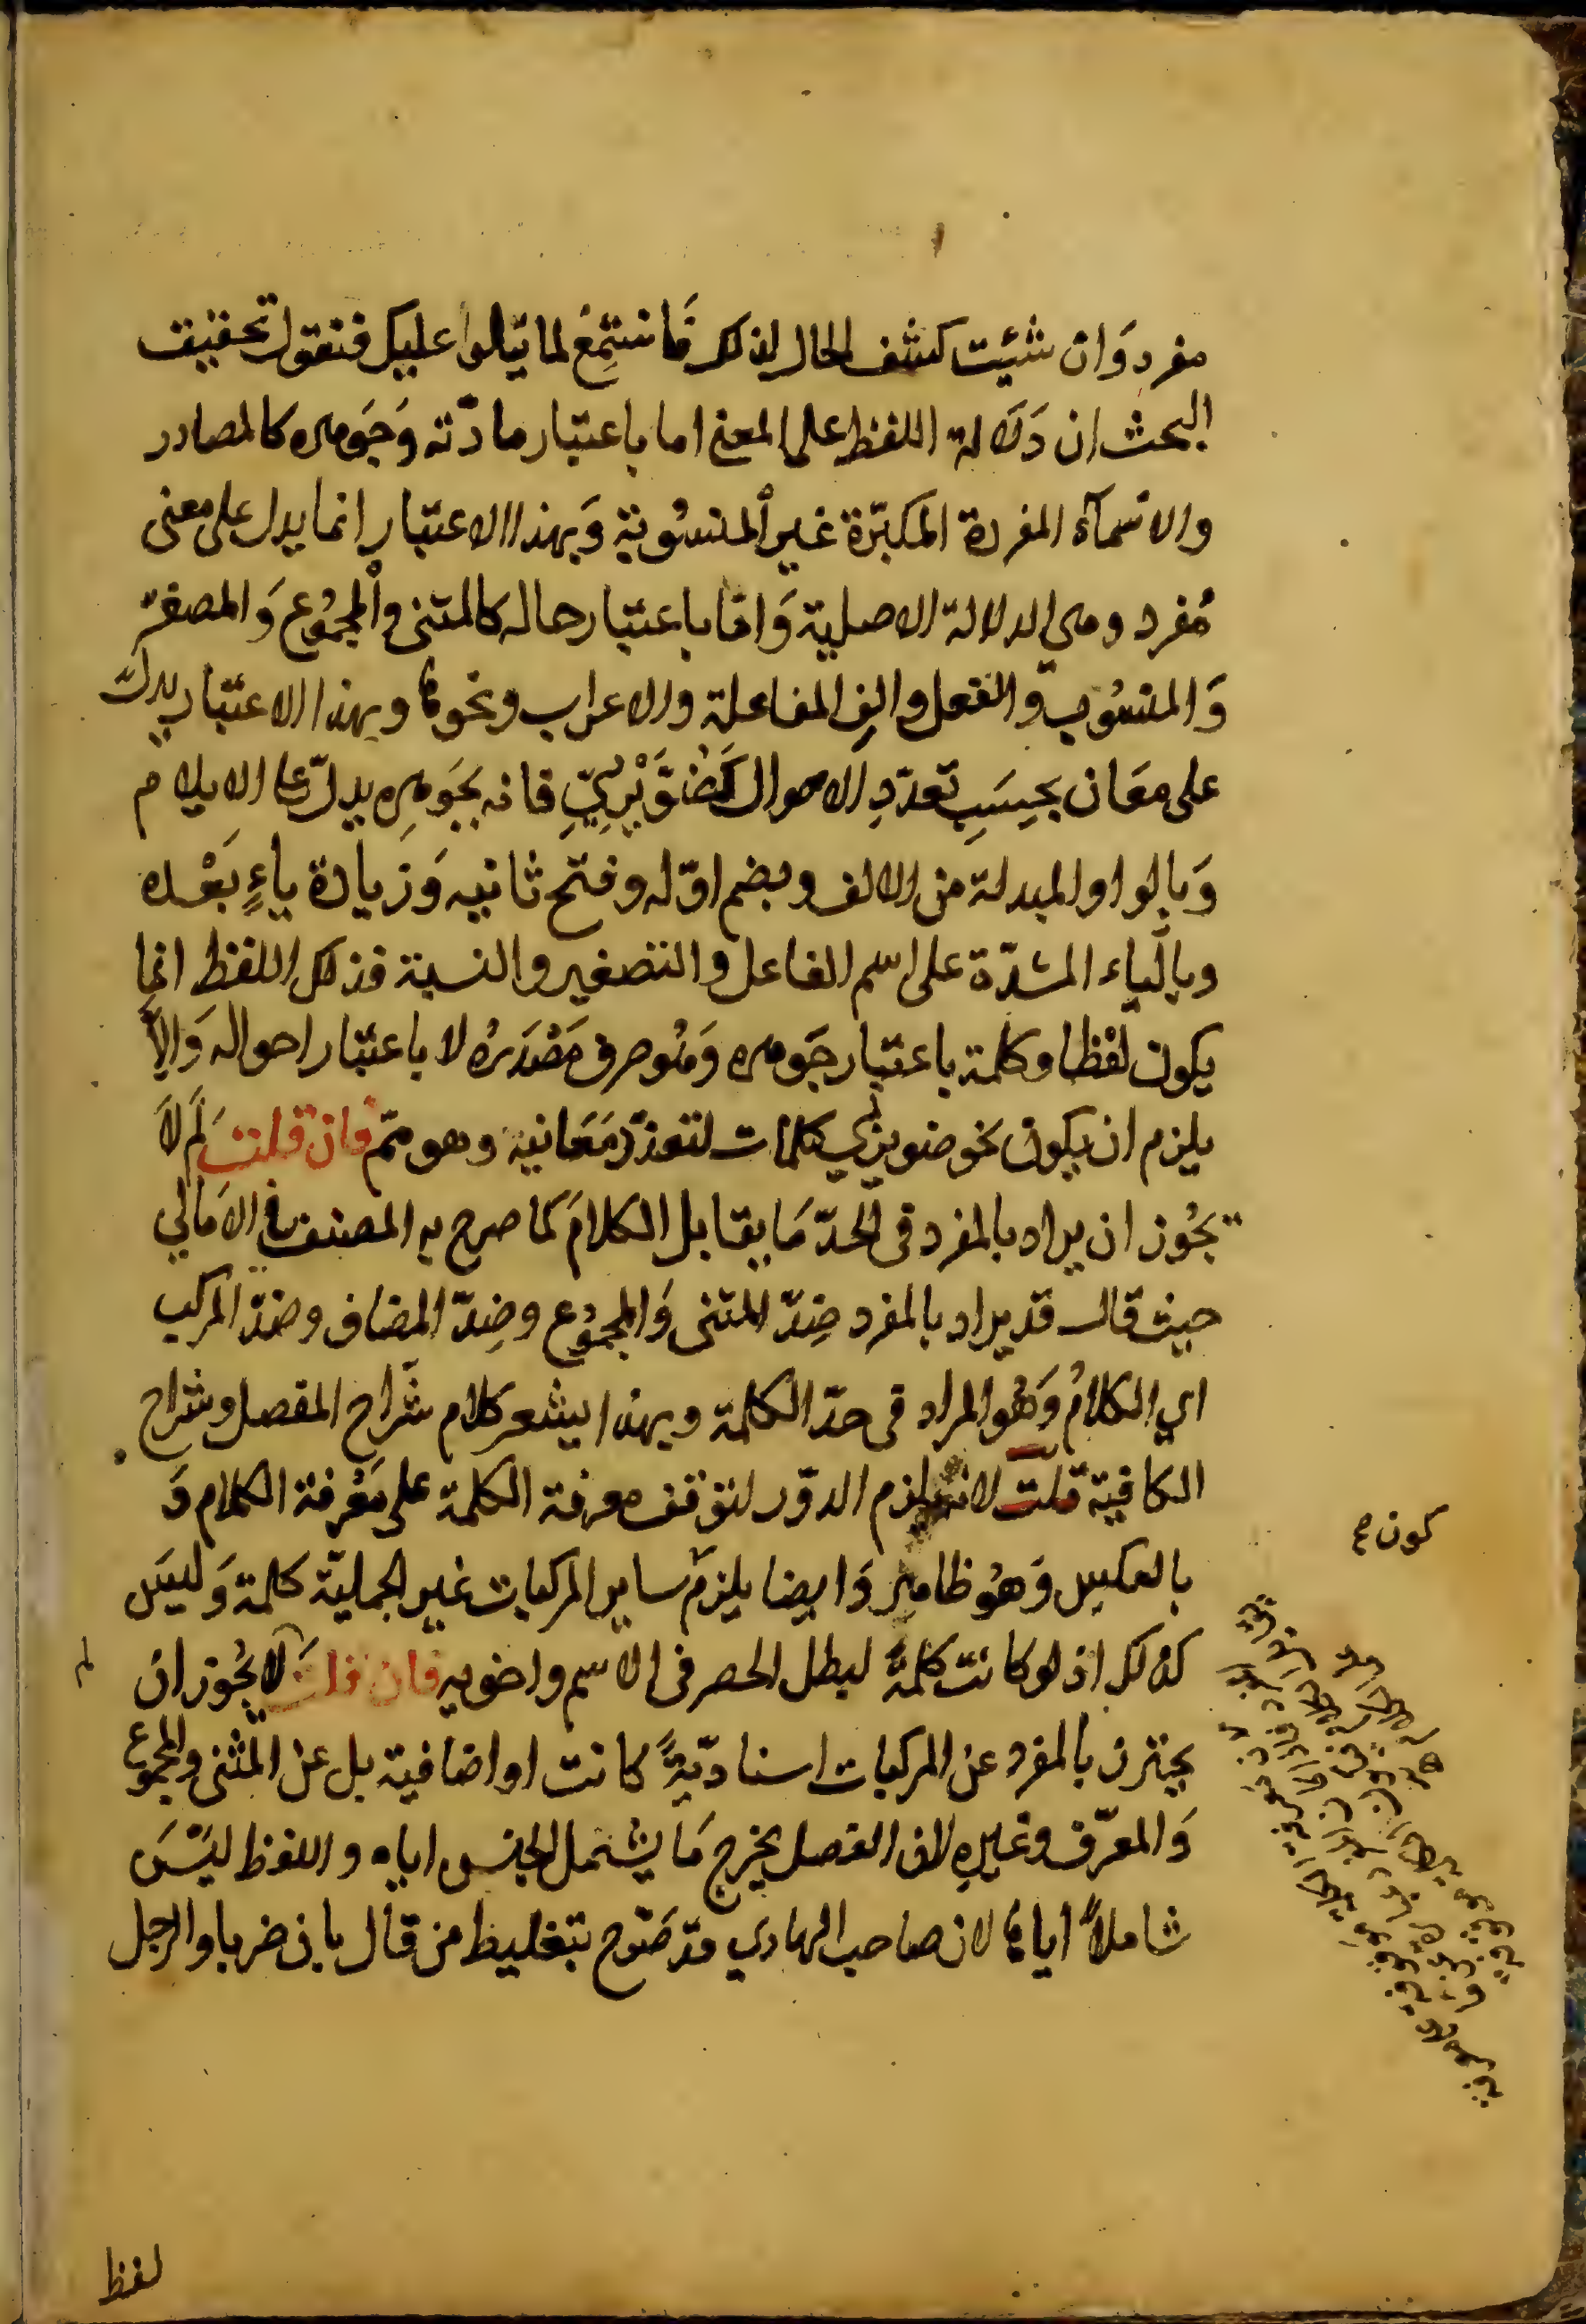 مفرد وَان شئيت كشف الحال لذلك فَاستَمِعْ لما يتلوا عليك فنقول تحقيق
البحث ان دَلَالة اللفظ على المعنى اما باعتبار مادّته وَجَوهره كالمصادر
والاسمآء المفردة المكبّرة غير المنسُوبة وَبهذا الاعتبار انما يدل على معنى
مُفرد وهى الدلالة الاصلية وَامّا باعتبار حاله كالمثنى والمجمُوع وَالمصغّر
وَالمنسُوب والفعل والف المفاعلة والاعراب ونحوها وبهذا الاعتبار يدلّ
على معَان بحسَبِ تعدّدِ الاحوال كَضُوَيْرِبِيّ فانه بجَوهرِه يدلّ على الايلام
وَبالواو المبدلة من الالف وبضم اوّله وفتح ثانيه وَزيادة ياءٍ بَعْده
وبالياء المشدّة على اسم الفاعل والتصغير والنسبة فذلك اللفظ انما
يكون لفظا وكلمة باعتبار جَوهره وَحُروف مَصْدَرُه لا باعتبار احواله وَالِاّ
يلزم ان يكون نحو ضويربي كلمات لتعدّد مَعَانيه وهو متم فان قلت لَم لاَ
يجُوز ان يراد بالمفرد فى الحدّ مَا يقابل الكلامَ كما صرح به المصنف فى الاَمالي
حيث قال قد يراد بالمفرد ضِدّ المثنى وَالمجمُوع وضِدّ المضاف وضدّ المركب
اي الكلامُ وَهُو المراد فى حدّ الكلمة وبهذا يشعر كلام شُرّاح المفصل وشراح
الكافية قلت لانه يلزم الدوّر لتوقف معرفة الكلمة على مَعْرفة الكلام وَ
بالعكس وَهُو ظاهر وَايضا يلزم ساير المركبات غير الجمليّة كلمة وَليسَ
كذلك اذ لو كانت كلمةً لبطل الحصر فى الاسم واخويه فان قلت لَا يجُوز ان
يحترز بالمفرد عن المركبات اسناديّةً كانت او اضافية بل عن المثنى والمجموع
وَالمعرّف وغيرِه لان الفصل يخرج مَا يشمل الجنس اياه واللفظ ليْسَ
شاملاً اياها لان صاحب الهادي قد صَرّح بتغليط من قال بان ضربا والرجل
كون صح
لم
لفظ